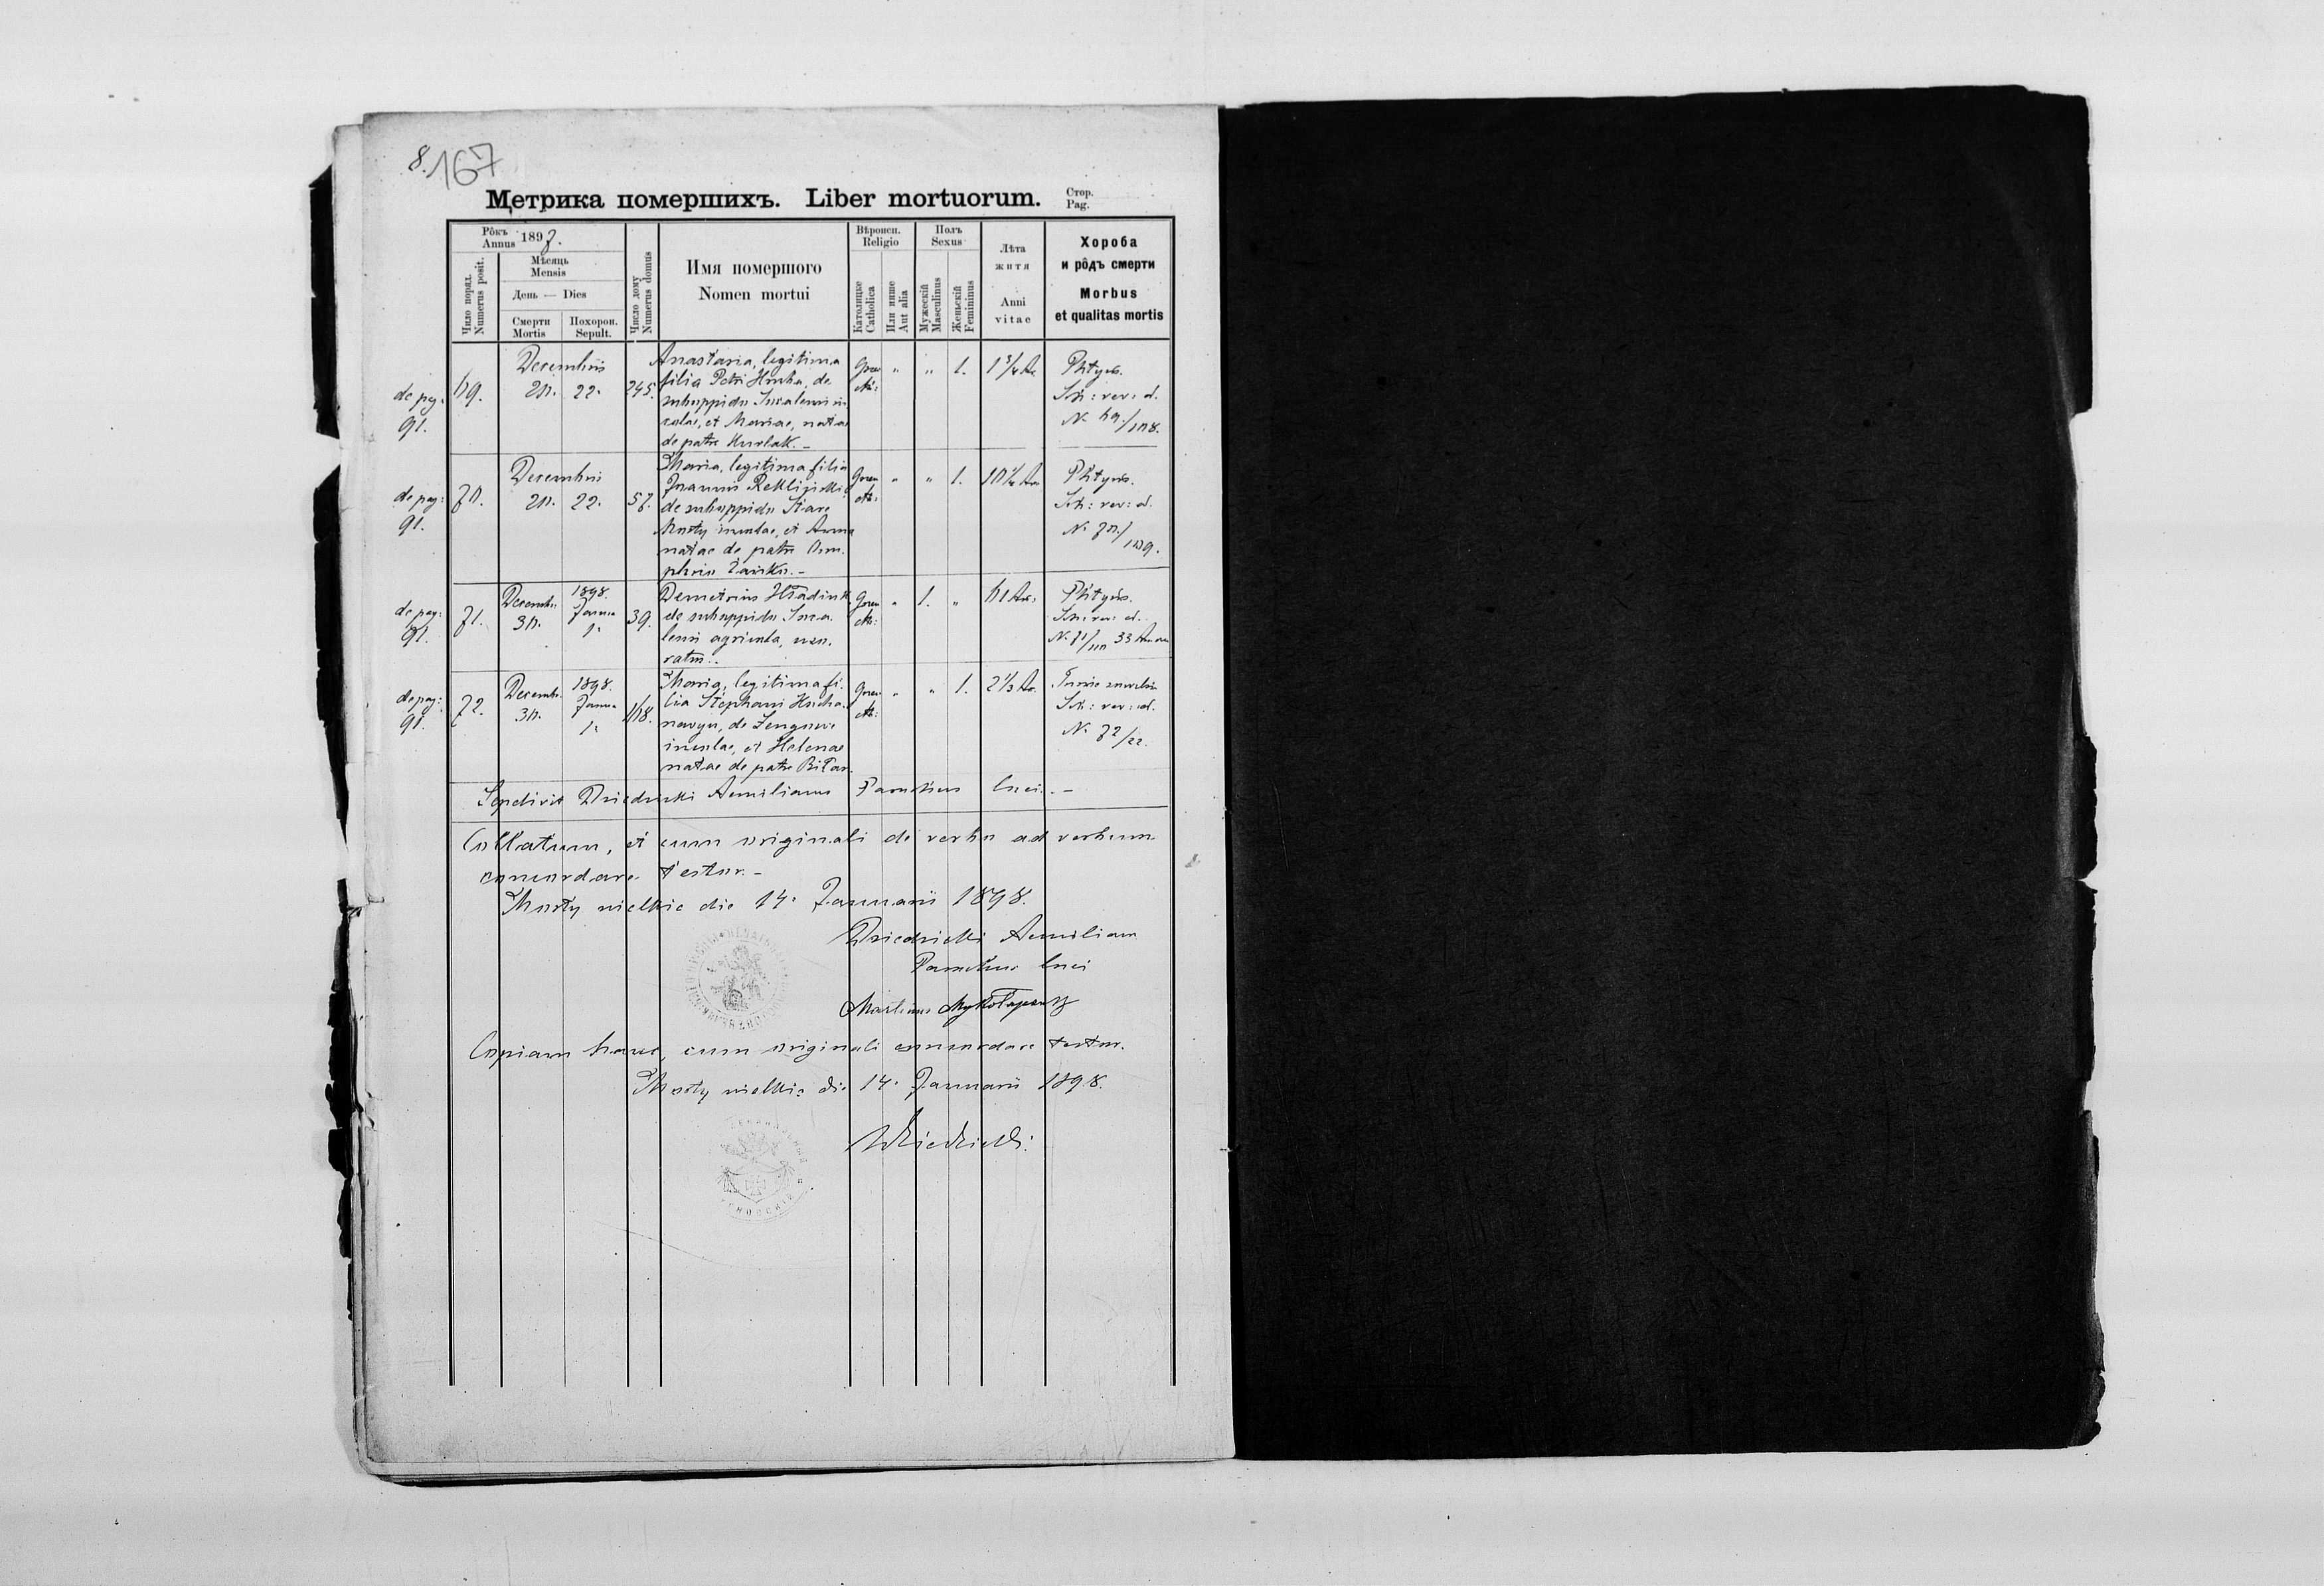 8. 167
Метрика помершихъ. Liber mortuorum.
Стор.
Pag.
Рôкъ
Annus 1897.
Число поряд.
Numerus posit.
Мѣсяць
Mensis
День — Dies
Смерти
Mortis
Похорон.
Sepult.
Число дому
Numerus domus
Имя помершого
Nomen mortui
Вѣроисп.
Religio
Католицке
Catholica
Или инше
Aut alia
Полъ
Sexus
Мужескій
Masculinus
Женьскій
Femininus
Лѣта
житя
Anni
vitae
Хороба
и рôдъ смерти
Morbus
et qualitas mortis
de pag:
91.
69.
Decembris
20. 22.
245.
Anastasia, legitima
filia Petri Hucha, de
suboppido
colae, et Mariae, natae
de patre Kurlak. –
" " 1. 1 3/4 An.
Phtysis.
Sch: rev: d.
N. 69./108.
de pag:
91.
70.
Decembris
20. 22.
57.
Maria, legitima filia
Joannis
de suboppido Stare
Mosty incolae, et Annae
natae de patre Onu-
phrio
" " 1. 10 1/4 An
Phtysis.
Sch: rev: d.
N. 70./
109.
de pag:
91.
71.
Decembr.
30.
1898.
Janua
1.
39.
Demetrius Hladiuk
de suboppido
agricola, uxo-
ratus.
" 1. " 61 An:
Phtysis.
Sch: rev: d.
N. 71/110 33
de pag:
91.
72.
Decembr.
30.
1898.
Janua
1.
168.
Maria, legitima fi-
lia Stephani Hucha-
, de
incolae, et Helenae
natae de patre Bilan.
" " 1. 2 1/3 An.
Sch: rev: d.
N. 72/22.
Sepelivit Dziedzicki Aemilianus Parochus loci. –
Collatum, et cum originali de verbo ad verbum
concordare testor. –
Mosty wielkie die 14. Januarii 1898.
Dziedzicki Aemilian
Parochus loci
Copiam hanc, cum originali concordare testor.
Mosty wielkie die 14. Januarii 1898.
Dziedzicki.